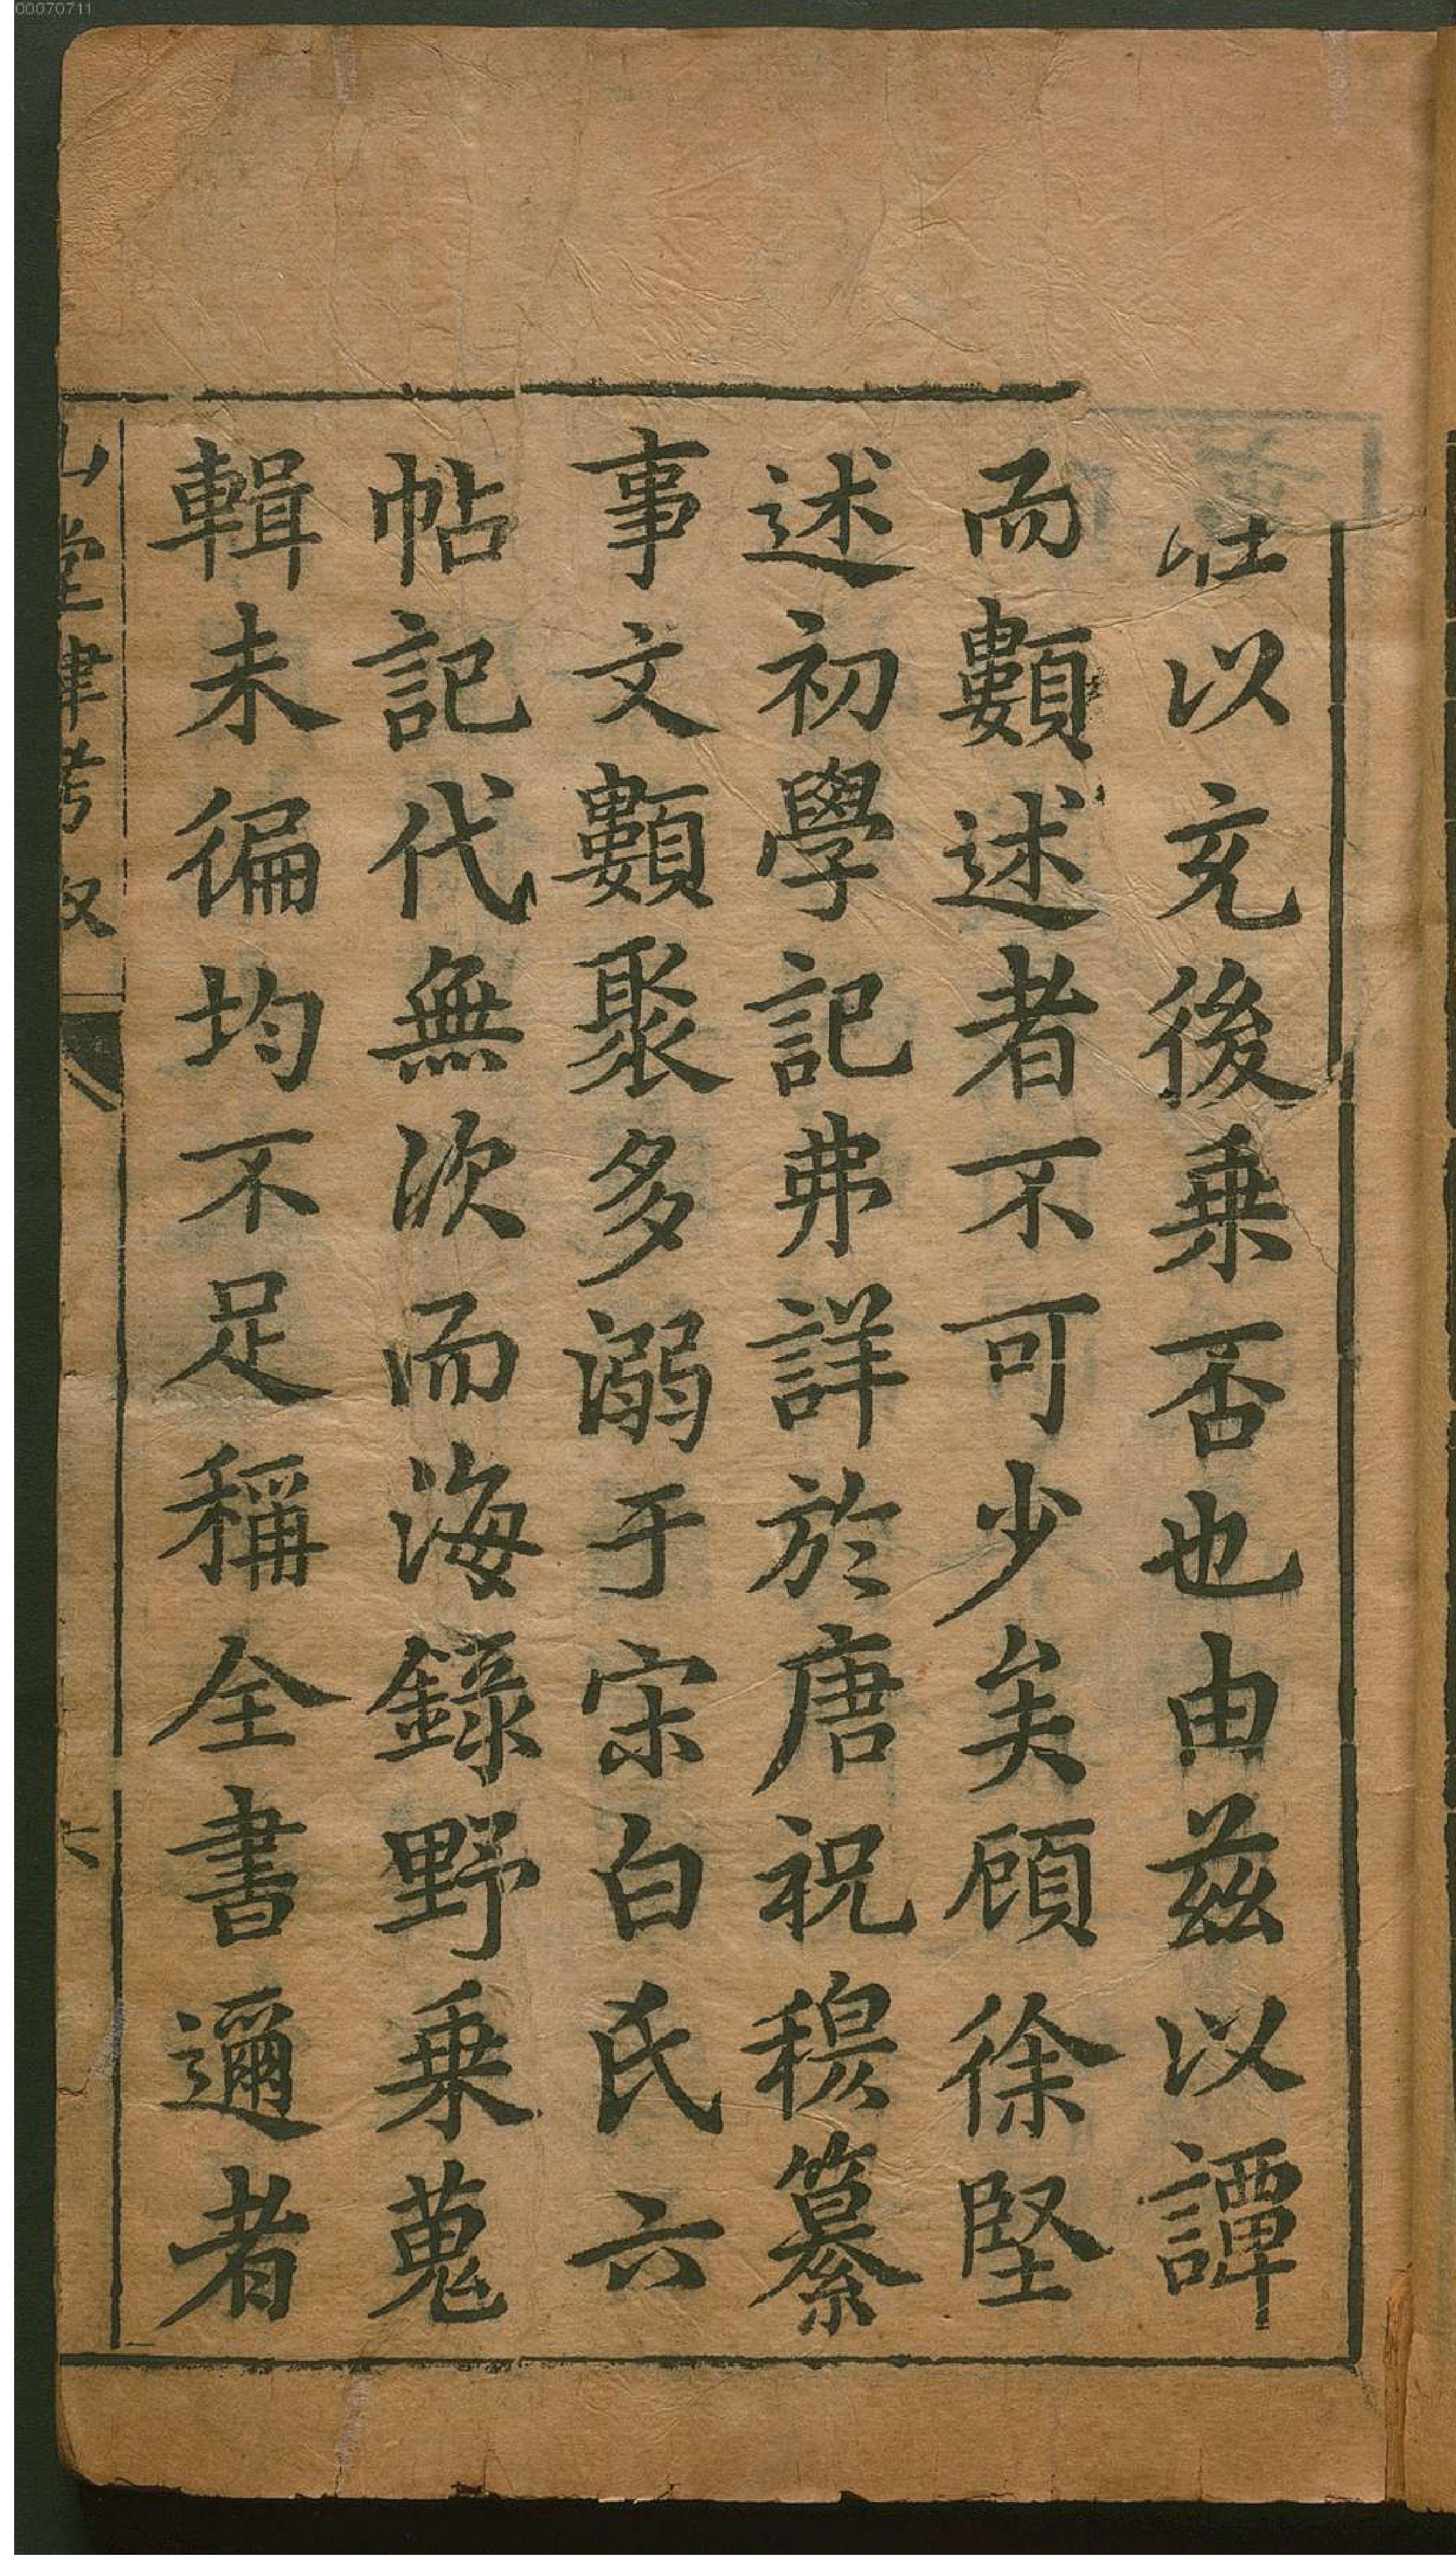 以充後乗否也由茲以譚
而類述者不可少矣顧徐堅
述初學記弗詳於唐祝穆纂
事文類聚多溺于宋白氏六
帖記代無次而海錄野乗蒐
輯未徧均不足稱全書邇者
山堂肆考 叙
六
00070711